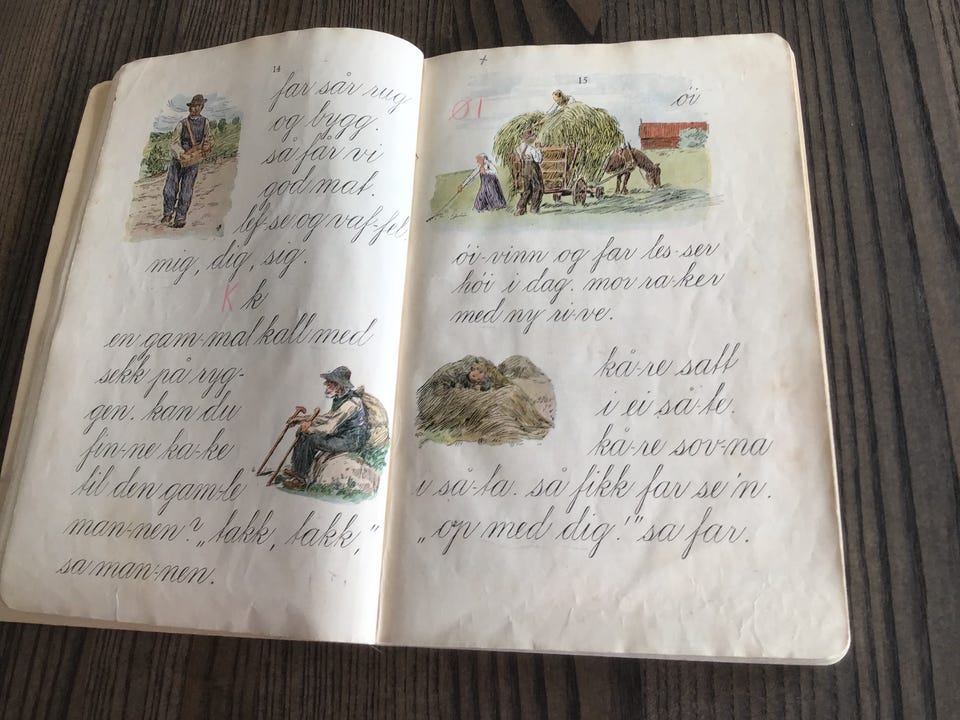 14
far sår rug
og bygg.
så får vi
god mat.
lef-se og vaf-fel.
mig, dig, sig.
K k
en gam-mal kall med
sekk på ryg-
gen. kan du
fin-ne ka-ke
til den gam-le
man-nen? „takk, takk,"
sa man-nen.
15
Øi
ói
ói-vinn og far les-ser
hói i dag. mor ra-ker
med ny ri-ve.
kå-re satt
i ei så-te.
kå-re sov-na
i så-ta. så fikk far se'n.
„op med dig!" sa far.